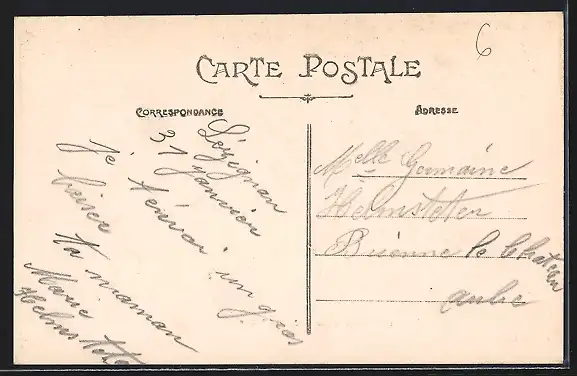 6
CARTE POSTALE
CORRESPONDANCE
ADRESSE
Lézignan
31 janvier
je t'envoi un gros
baiser
ta maman
Marie
Helmsteter
Melle Germaine
Helmsteter
Brienne le Chateau
aube